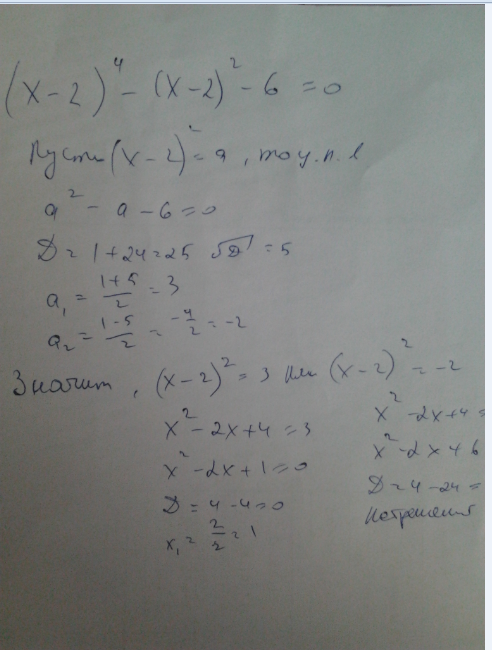 (x-2)⁴ - (x-2)² - 6 = 0
Пусть (x-2)² = a, то у.п.в
a² - a - 6 = 0
D = 1+24=25 √D = 5
a₁ = (1+5)/2 = 3
a₂ = (1-5)/2 = -4/2 = -2
Значит, (x-2)² = 3 или (x-2)² = -2
x² - 2x+4 = 3
x² - 2x+1=0
D = 4-4=0
x₁ = 2/2 = 1
x² - 2x+4 =
x² - 2x+6
D = 4-24 =
Нет решений